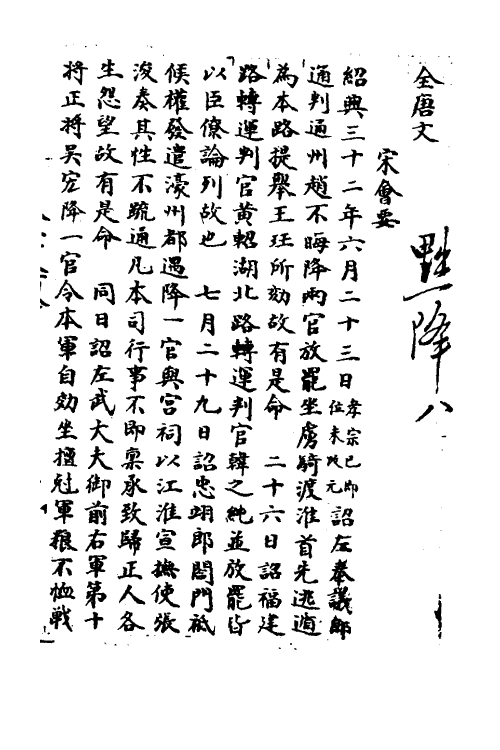 全唐文
宋會要
黜降八
紹興三十二年六月二十三日孝宗已即位未改元詔左奉議郎
通判通州趙不晦降兩官放罷坐虜騎渡淮首先逃遁
為本路提舉王珏所劾故有是命　二十六日詔福建
路轉運判官黃軺湖北路轉運判官韓之純並放罷皆
以臣僚論列故也　七月二十九日詔忠翊郎閤門祗
候權發遣濠州都遇降一官與宮祠以江淮宣撫使張
浚奏其性不疏通凡本司行事不即稟承致歸正人各
生怨望故有是命　同日詔左武大夫御前右軍第十
將正將吳宏降一官令本軍自効坐擅尅軍糧不恤戰